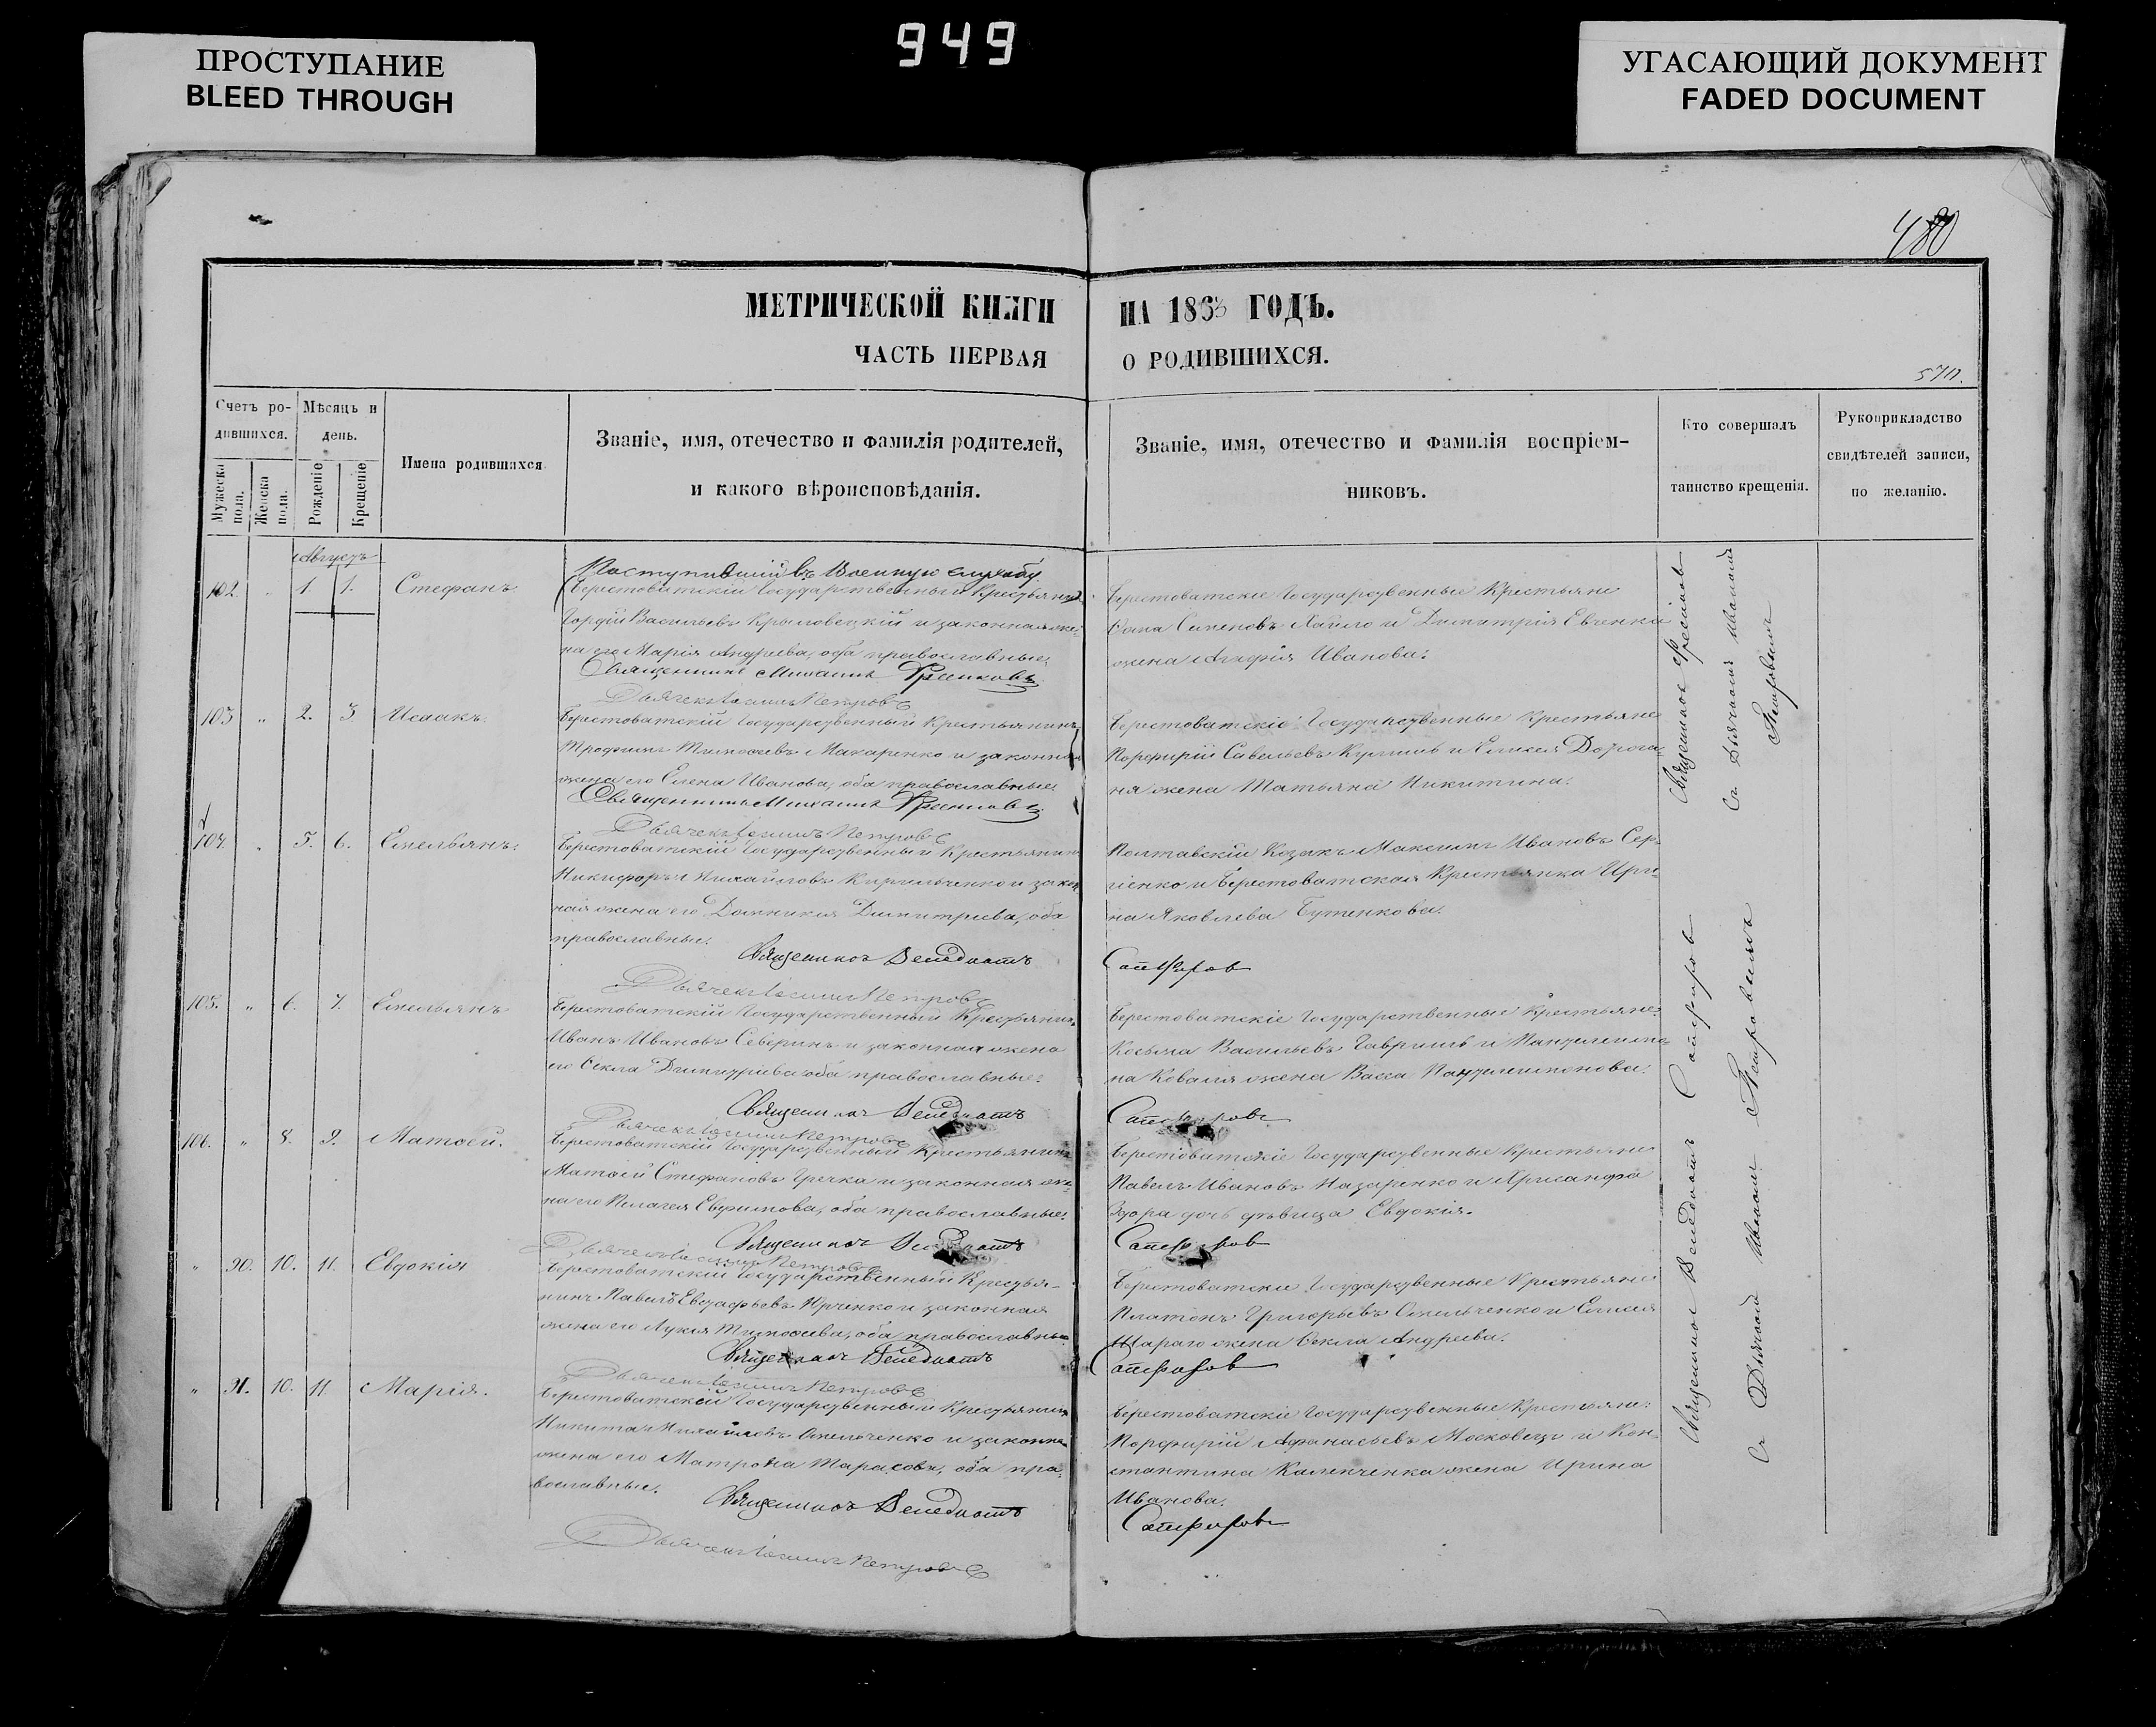 949
ПРОСТУПАНИЕ
BLEED THROUGH
УГАСАЮЩИЙ ДОКУМЕНТ
FADED DOCUMENT
480
МЕТРИЧЕСКОЙ КНИГИ НА 1863 ГОДЪ.
ЧАСТЬ ПЕРВАЯ О РОДИВШИХСЯ.
Счетъ ро-
дившихся.
Мужеска пола.
Женска пола.
Мѣсяцъ и
день.
Рожденіе
Крещеніе
Имена родившихся
Званіе, имя, отечество и фамилія родителей,
и какого вѣроисповѣданія.
Званіе, имя, отечество и фамилія воспріем-
никовъ.
Кто совершалъ
таинство крещенія.
Рукоприкладство
свидѣтелей записи,
по желанію.
Августъ
102. " 1. 1. Стефанъ
Поступившій въ Военную службу
Берестоватскій Государственный Крестьянинъ
Гордій Васильевъ Крыловецкій и законная же-
на его Марія Андреева, оба православные.
Священникъ Михаилъ
Дьячекъ Іоаннъ Петровъ
Берестоватскіе Государственные Крестьяне
Семеновъ и Димитрія Евченка
жена Агафія Иванова.
103 " 2. 3 Исаакъ.
Берестоватскій Государственный Крестьянинъ
Трофимъ Тимофеевъ Макаренко и законная
жена его Елена Иванова, оба православные.
Священникъ Михаилъ
Дьячекъ Іоаннъ Петровъ
Берестоватскіе Государственные Крестьяне
Порфирій Савельевъ Кулишъ и Елисея Дорога-
ня жена Татьяна Никитина.
104 " 5. 6. Емельянъ.
Берестоватскій Государственный Крестьянинъ
Никифоръ Михайловъ Кирильченко и закон-
ная жена его Домникія Димитріева, оба
православные.
Священникъ Венедиктъ Сапфировъ
Дьячекъ Іоаннъ Петровъ
Полтавскій Козакъ Максимъ Ивановъ Сер-
гіенко и Берестоватская Крестьянка Ири-
на Яковлева Бутенкова.
105. " 6. 7. Емельянъ
Берестоватскій Государственный Крестьянинъ
Иванъ Ивановъ Северинъ и законная жена
его Ѳекла Димитріева оба православные.
Священникъ Венедиктъ Сапфировъ
Дьячекъ Іоаннъ Петровъ
Берестоватскіе Государственные Крестьяне:
Косьма Васильевъ Гавришъ и Пантелеимо-
на Коваля жена Васса Пантелеимонова.
106. " 8. 9. Матѳей.
Берестоватскій Государственный Крестьянинъ
Матѳей Стефановъ Гречка и законная же-
на его Пелагея Евфимова, оба православные.
Священникъ Венедиктъ Сапфировъ
Дьячекъ Іоаннъ Петровъ
Берестоватскіе Государственные Крестьяне
Павелъ Ивановъ Назаренко и Хрисанфа
дочь дѣвица Евдокія.
" 90. 10. 11. Евдокія
Берестоватскій Государственный Крестья-
нинъ Павелъ Евстафьевъ Юрченко и законная
жена его Лукія Тимофеева, оба православные
Священникъ Венедиктъ Сапфировъ
Дьячекъ Іоаннъ Петровъ
Берестоватскіе Государственные Крестьяне
Платонъ Григорьевъ Омельченко и Елисея
Шараго жена Ѳекла Андреева.
" 91. 10. 11. Марія.
Берестоватскій Государственный Крестьянинъ
Никита Михайловъ Омельченко и законная
жена его Матрона Тарасова, оба пра-
вославные.
Священникъ Венедиктъ Сапфировъ
Дьячекъ Іоаннъ Петровъ
Берестоватскіе Государственные Крестьяне:
Порфирій Афанасьевъ Московецъ и Кон-
стантина Каленченка жена Ирина
Иванова.
Съ Дьячкомъ Иваномъ
Петровымъ
Священникъ Венедиктъ Сапфировъ
Съ Дьячкомъ Иваномъ Петровымъ